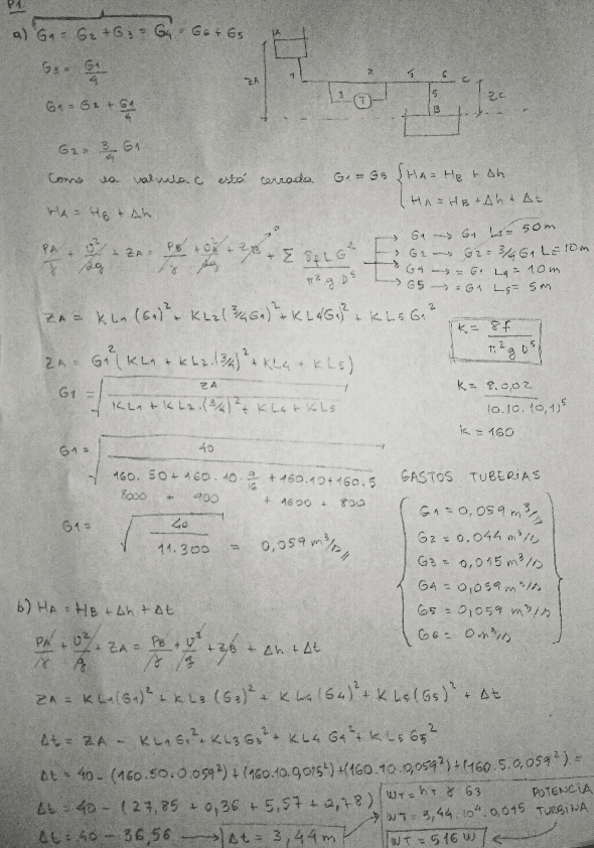 P1.
a) G1 = G2 + G3 = G4 = G6 + G5
G3 = G1/4
G1 = G2 + G1/4
G2 = 3/4 G1
A
ZA
1
2
3
T
4
6
C
5
B
ZC
Como la valvula c está cerrada G1 = G5 { HA = HB + Δh
HA = HB + Δh + Δt
HA = HB + Δh
PA/γ + v²/2g + ZA = PB/γ + v²/2g + ZB + Σ 8fLG²/π²gD⁵
→ G1 → G1 L1 = 50m
→ G2 → G2 = 3/4 G1 L = 10m
→ G4 → = G1 L4 = 10m
→ G5 → = G1 L5 = 5m
ZA = KL1 (G1)² + KL2 (3/4 G1)² + KL4 (G1)² + KL5 G1²
K = 8f/π²gD⁵
ZA = G1² (KL1 + KL2.(3/4)² + KL4 + KL5)
G1 = √ ZA / KL1 + KL2.(3/4)² + KL4 + KL5
K = 8.0,02 / 10.10.(0,1)⁵
K = 160
G1 = √ 40 / 160.50 + 160.10.9/16 + 160.10 + 160.5
8000 + 900 + 1600 + 800
G1 = √ 40 / 11.300 = 0,059 m³/s //
GASTOS TUBERIAS
G1 = 0,059 m³/s
G2 = 0,044 m³/s
G3 = 0,015 m³/s
G4 = 0,059 m³/s
G5 = 0,059 m³/s
G6 = 0 m³/s
b) HA = HB + Δh + Δt
PA/γ + v²/g + ZA = PB/γ + v²/g + ZB + Δh + Δt
ZA = KL1 (G1)² + KL3 (G3)² + KL4 (G4)² + KL5 (G5)² + Δt
Δt = ZA - KL1 G1² + KL3 G3² + KL4 G4² + KL5 G5²
Δt = 40 - (160.50.0,059²) + (160.10.0,015²) + (160.10.0,059²) + (160.5.0,059²) =
Δt = 40 - (27,85 + 0,36 + 5,57 + 2,78)
Δt = 40 - 36,56 → Δt = 3,44 m
WT = hT γ G3
POTENCIA TURBINA
WT = 3,44.10⁴.0,015
WT = 516 W